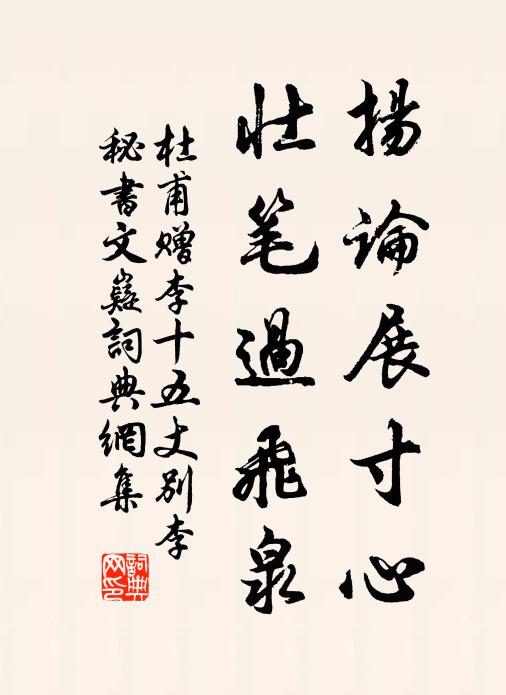 揚論展寸心
壮笔過飛泉
杜甫赠李十五丈别李
秘書文嶷詞典網集
詞典网印